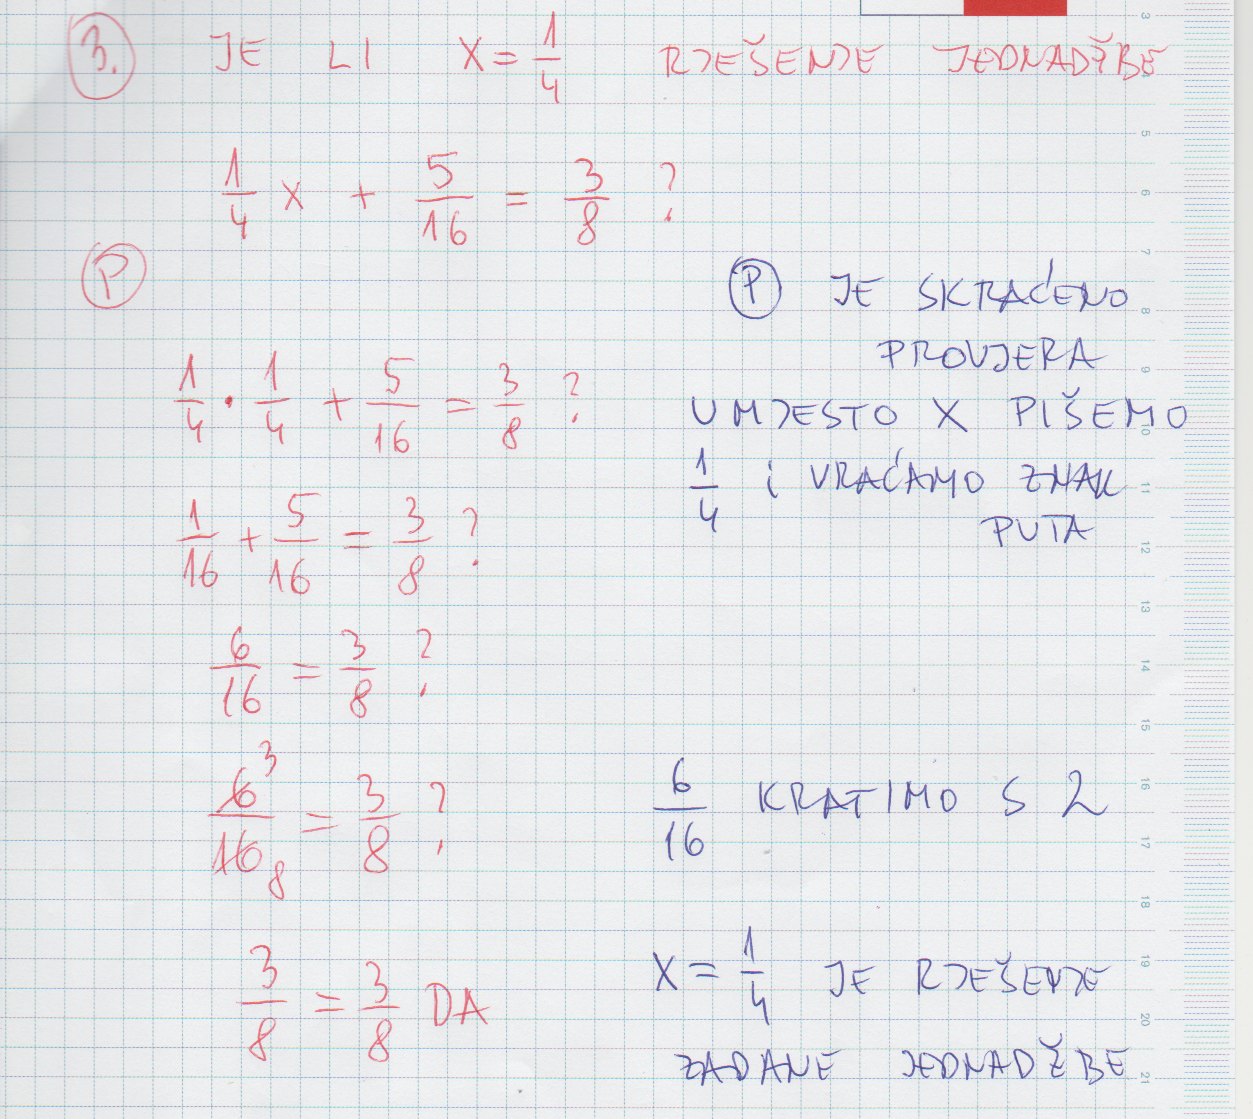 3. JE LI X = 1/4 RJEŠENJE JEDNADŽBE
1/4 X + 5/16 = 3/8 ?
P
P JE SKRAĆENO
PROVJERA
1/4 · 1/4 + 5/16 = 3/8 ?
UMJESTO X PIŠEMO
1/4 i VRAĆAMO ZNAK
PUTA
1/16 + 5/16 = 3/8 ?
6/16 = 3/8 ?
6 3/16 8 = 3/8 ?
6/16 KRATIMO S 2
3/8 = 3/8 DA
X = 1/4 JE RJEŠENJE
ZADANE JEDNADŽBE
3
4
5
6
7
8
9
10
11
12
13
14
15
16
17
18
19
20
21